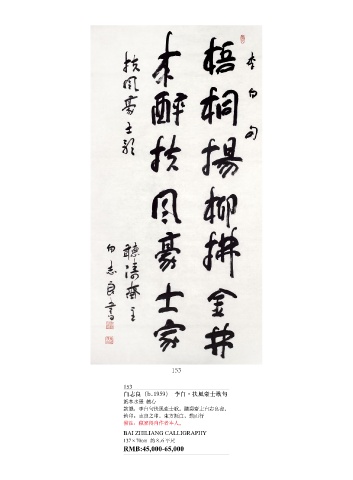 李白句
梧桐楊柳拂金井
來醉扶風豪士家
扶風豪士歌
聽濤齋主
白志良書
153
153
白志良（b.1959） 李白·扶風豪士歌句
紙本水墨 鏡心
BAI ZHILIANG CALLIGRAPHY
137×70cm 約8.6平尺
RMB:45,000-65,000